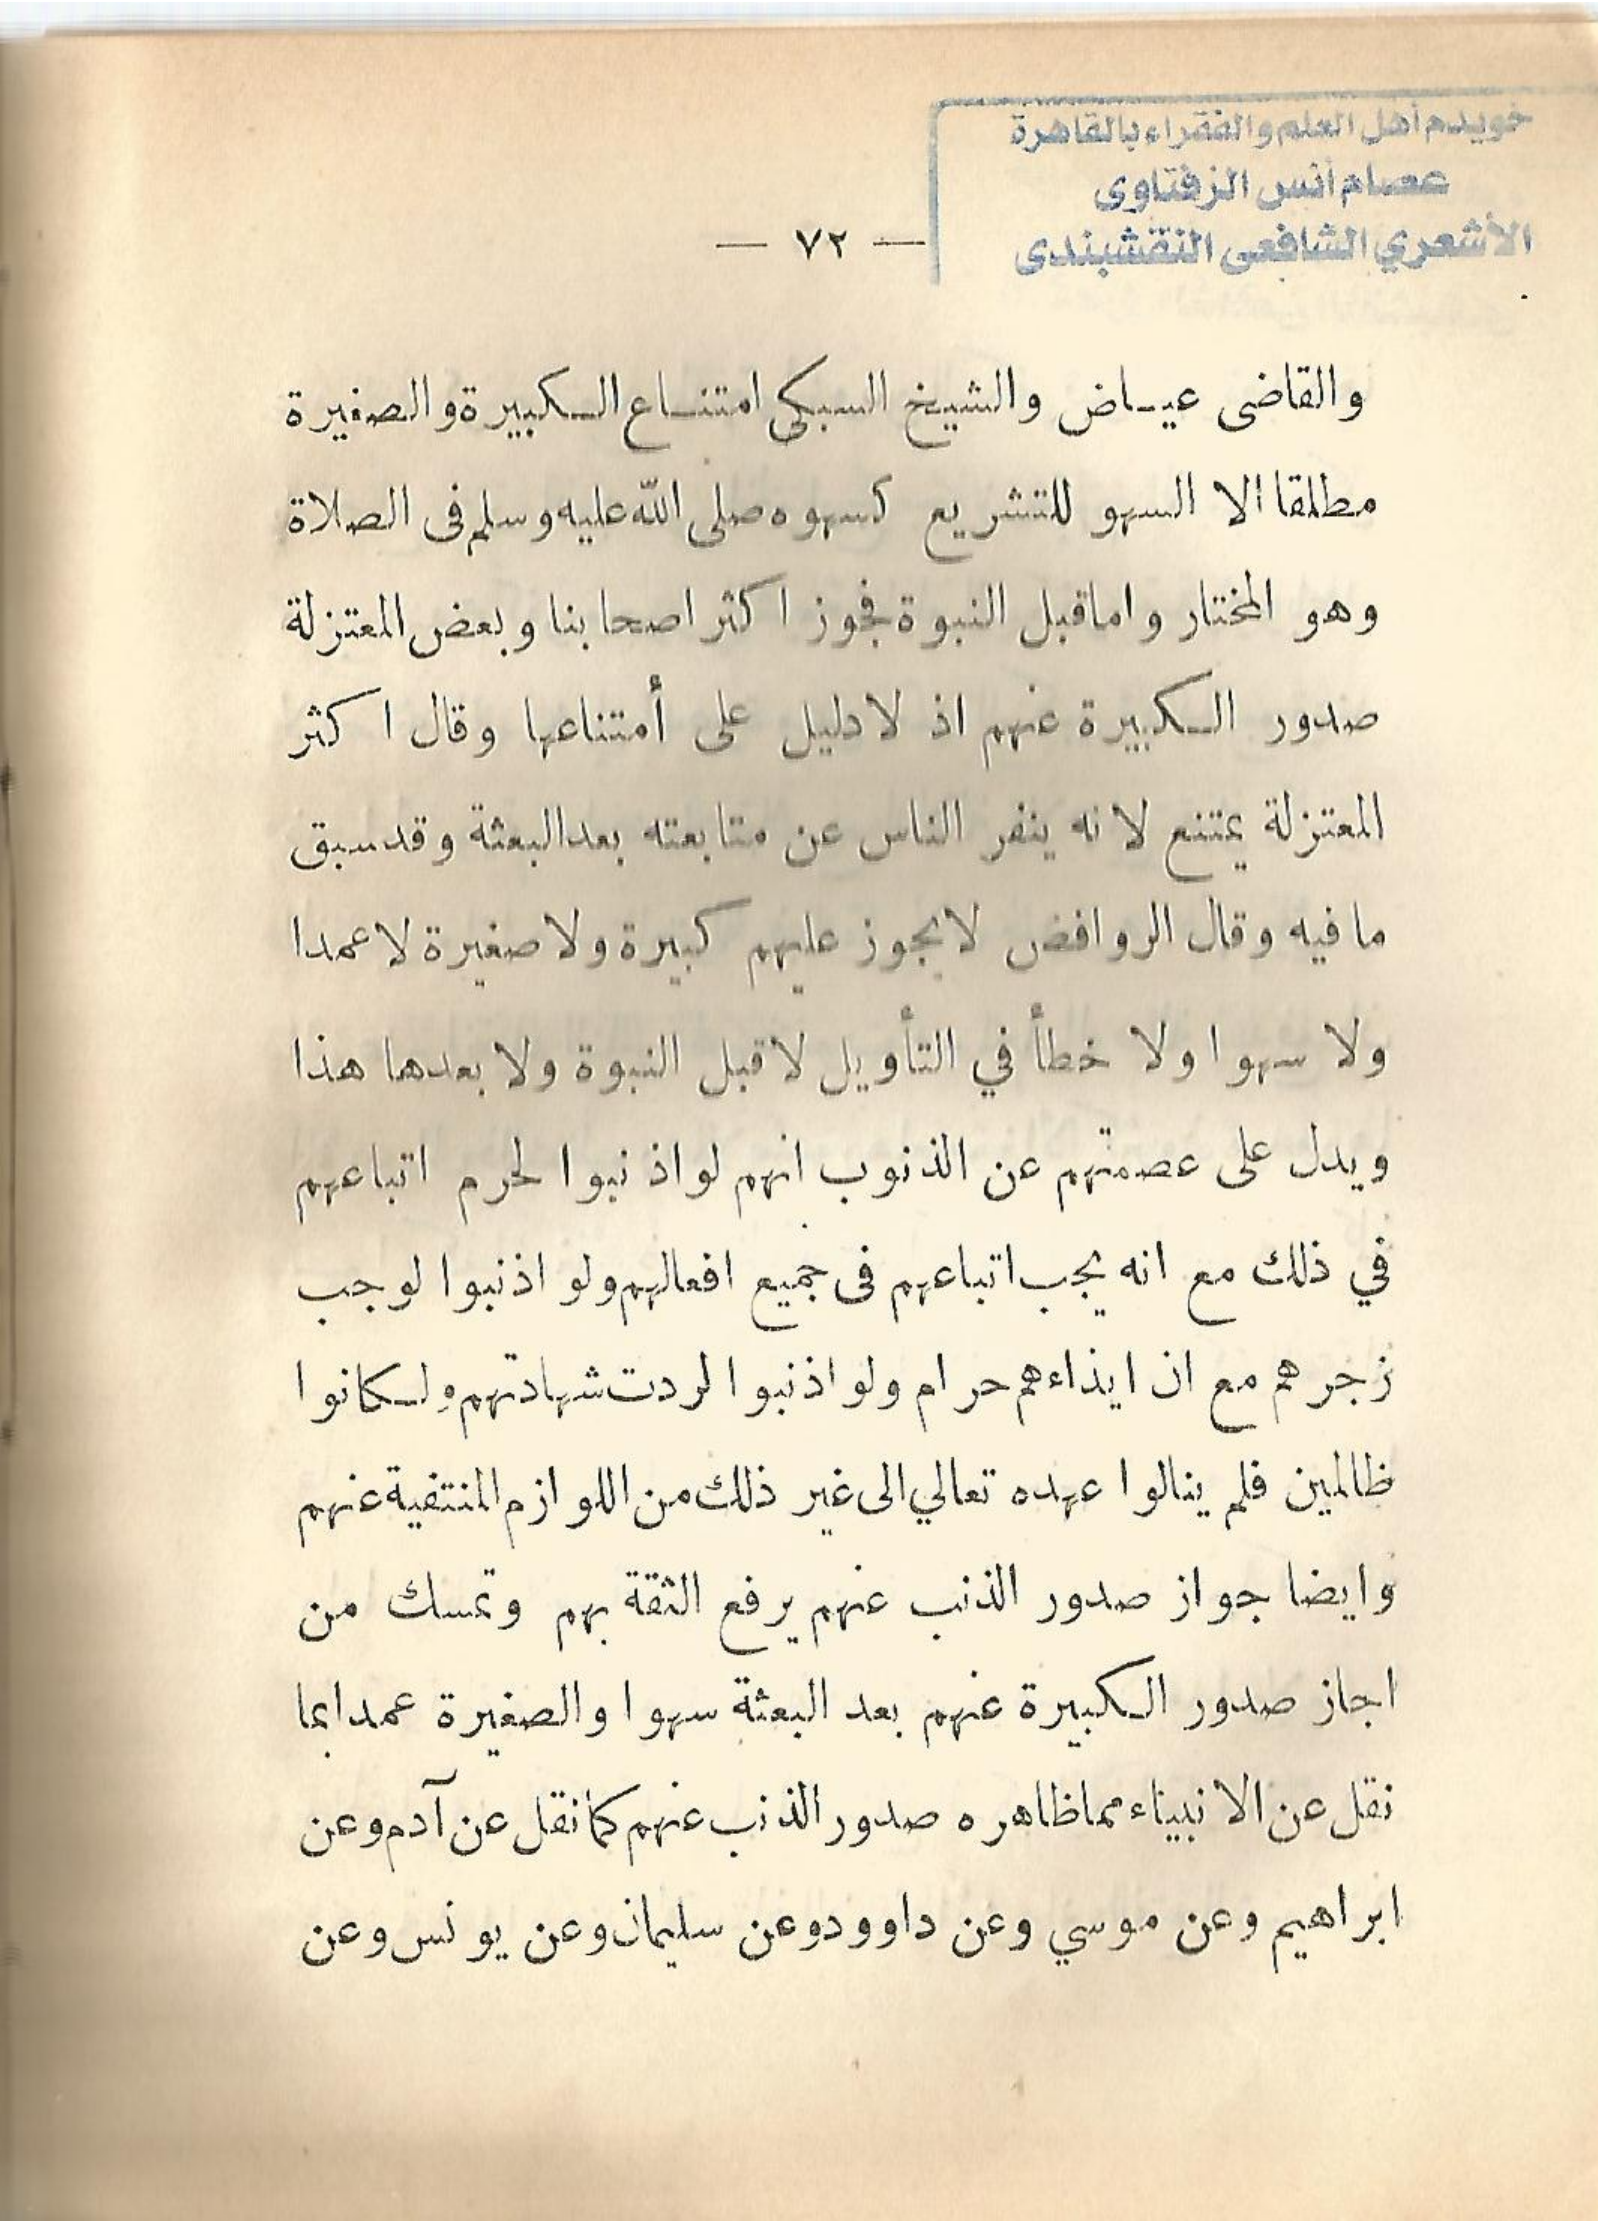 خويدم أهل العلم والفقراء بالقاهرة
عصام أنس الزفتاوى
الأشعري الشافعى النقشبندى
— ٧٢ —
والقاضى عياض والشيخ السبكى امتناع الكبيرة والصغيرة
مطلقا الا السهو للتشريع كسهوه صلى الله عليه وسلم فى الصلاة
وهو المختار واما قبل النبوة فجوز اكثر اصحابنا وبعض المعتزلة
صدور الكبيرة عنهم اذ لا دليل على أمتناعها وقال اكثر
المعتزلة يمتنع لانه ينفر الناس عن متابعته بعد البعثة وقد سبق
ما فيه وقال الروافض لا يجوز عليهم كبيرة ولا صغيرة لا عمدا
ولا سهوا ولا خطأ في التأويل لا قبل النبوة ولا بعدها هذا
ويدل على عصمتهم عن الذنوب انهم لو اذنبوا لحرم اتباعهم
في ذلك مع انه يجب اتباعهم فى جميع افعالهم ولو اذنبوا لوجب
زجرهم مع ان ايذاءهم حرام ولو اذنبوا لردت شهادتهم ولكانوا
ظالمين فلم ينالوا عهده تعالي الى غير ذلك من اللوازم المنتفية عنهم
وايضا جواز صدور الذنب عنهم يرفع الثقة بهم وتمسك من
اجاز صدور الكبيرة عنهم بعد البعثة سهوا والصغيرة عمدا بما
نقل عن الانبياء مما ظاهره صدور الذنب عنهم كما نقل عن آدم وعن
ابراهيم وعن موسي وعن داوود وعن سليمان وعن يونس وعن